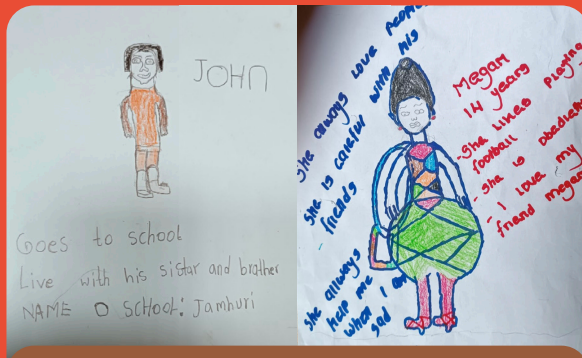 JOHN
Goes to school
Live with his sistar and brother
NAME O SCHOOL: Jamhuri
She allways love people
she is careful with his
friends
She allways
help me
when I am
sad
Megan
14 years
-she likes playing
football
- she is obedient
- I love my
friend megan